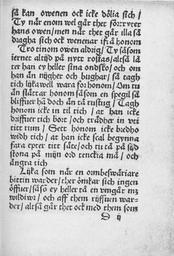 så kan owenen ock icke dölia sich /
Ty när enom wel går thet förtryter
hans owen / men när thet går illa så
dragha sich ock wenenar ifrå honom
Tro tinom owen aldrig / Ty såsom
iernet altijd på nytt rostas / altså lå
ter han ey heller sina ondsko / och om
han än nijgher och bughar / så tagh
tich lijka wel wara for honom / Om tu
än slättar honom såsom en spegel så
bliffuer hå doch än tå rustug / Tagh
honom icke in til tich / at han icke
driffuer tich bort / och trädher in vti
titt rum / Sett honom icke bredho
widh tich / at han icke seal begynna
fara epter titt säte / och tu tå på sijd
stona på mijn ord tenckia må / och
ångra tich
Lijka som når en ormbeswäriare
bitin warder / thet ömkar sich ingen
öffuer / såsö ey heller tå en vmgår mz
wildiur / och aff them rijffuen war-
der / altså går thet ock med them som
D ij